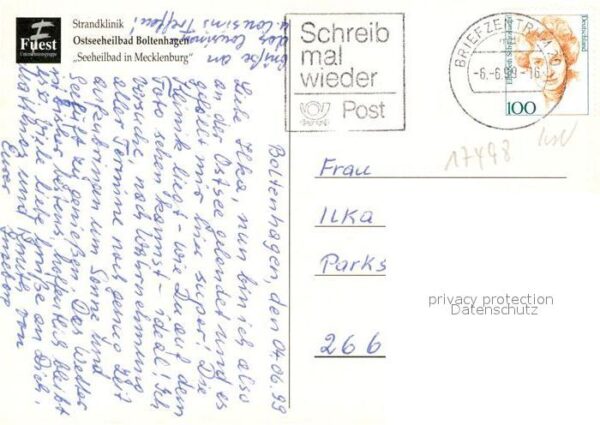 Fuest
Strandklinik
Ostseeheilbad Boltenhagen
„Seeheilbad in Mecklenburg"
Grüße an
das Cousinen
u. Cousins Treffen!
Boltenhagen, den 04.06.99
Liebe Ilka, nun bin ich also
an der Ostsee gelandet und es
gefällt mir hier super! Die
Klinik liegt – wie Du auf dem
Foto sehen kannst – ideal! Ich
versuche, nach Wahrnehmung
aller Termine noch genug Zeit
aufzubringen um Sonne und
Seeluft zu genießen. Das Wetter
ist
hoffentlich bleibt
liebe Grüße an Dich,
und
von
Eurer
Schreib
mal
wieder
Post
BRIEFZENTRUM
-6.-6.99-16
Deutschland
100
17498
Frau
ILKA
Parks
266
privacy protection
Datenschutz